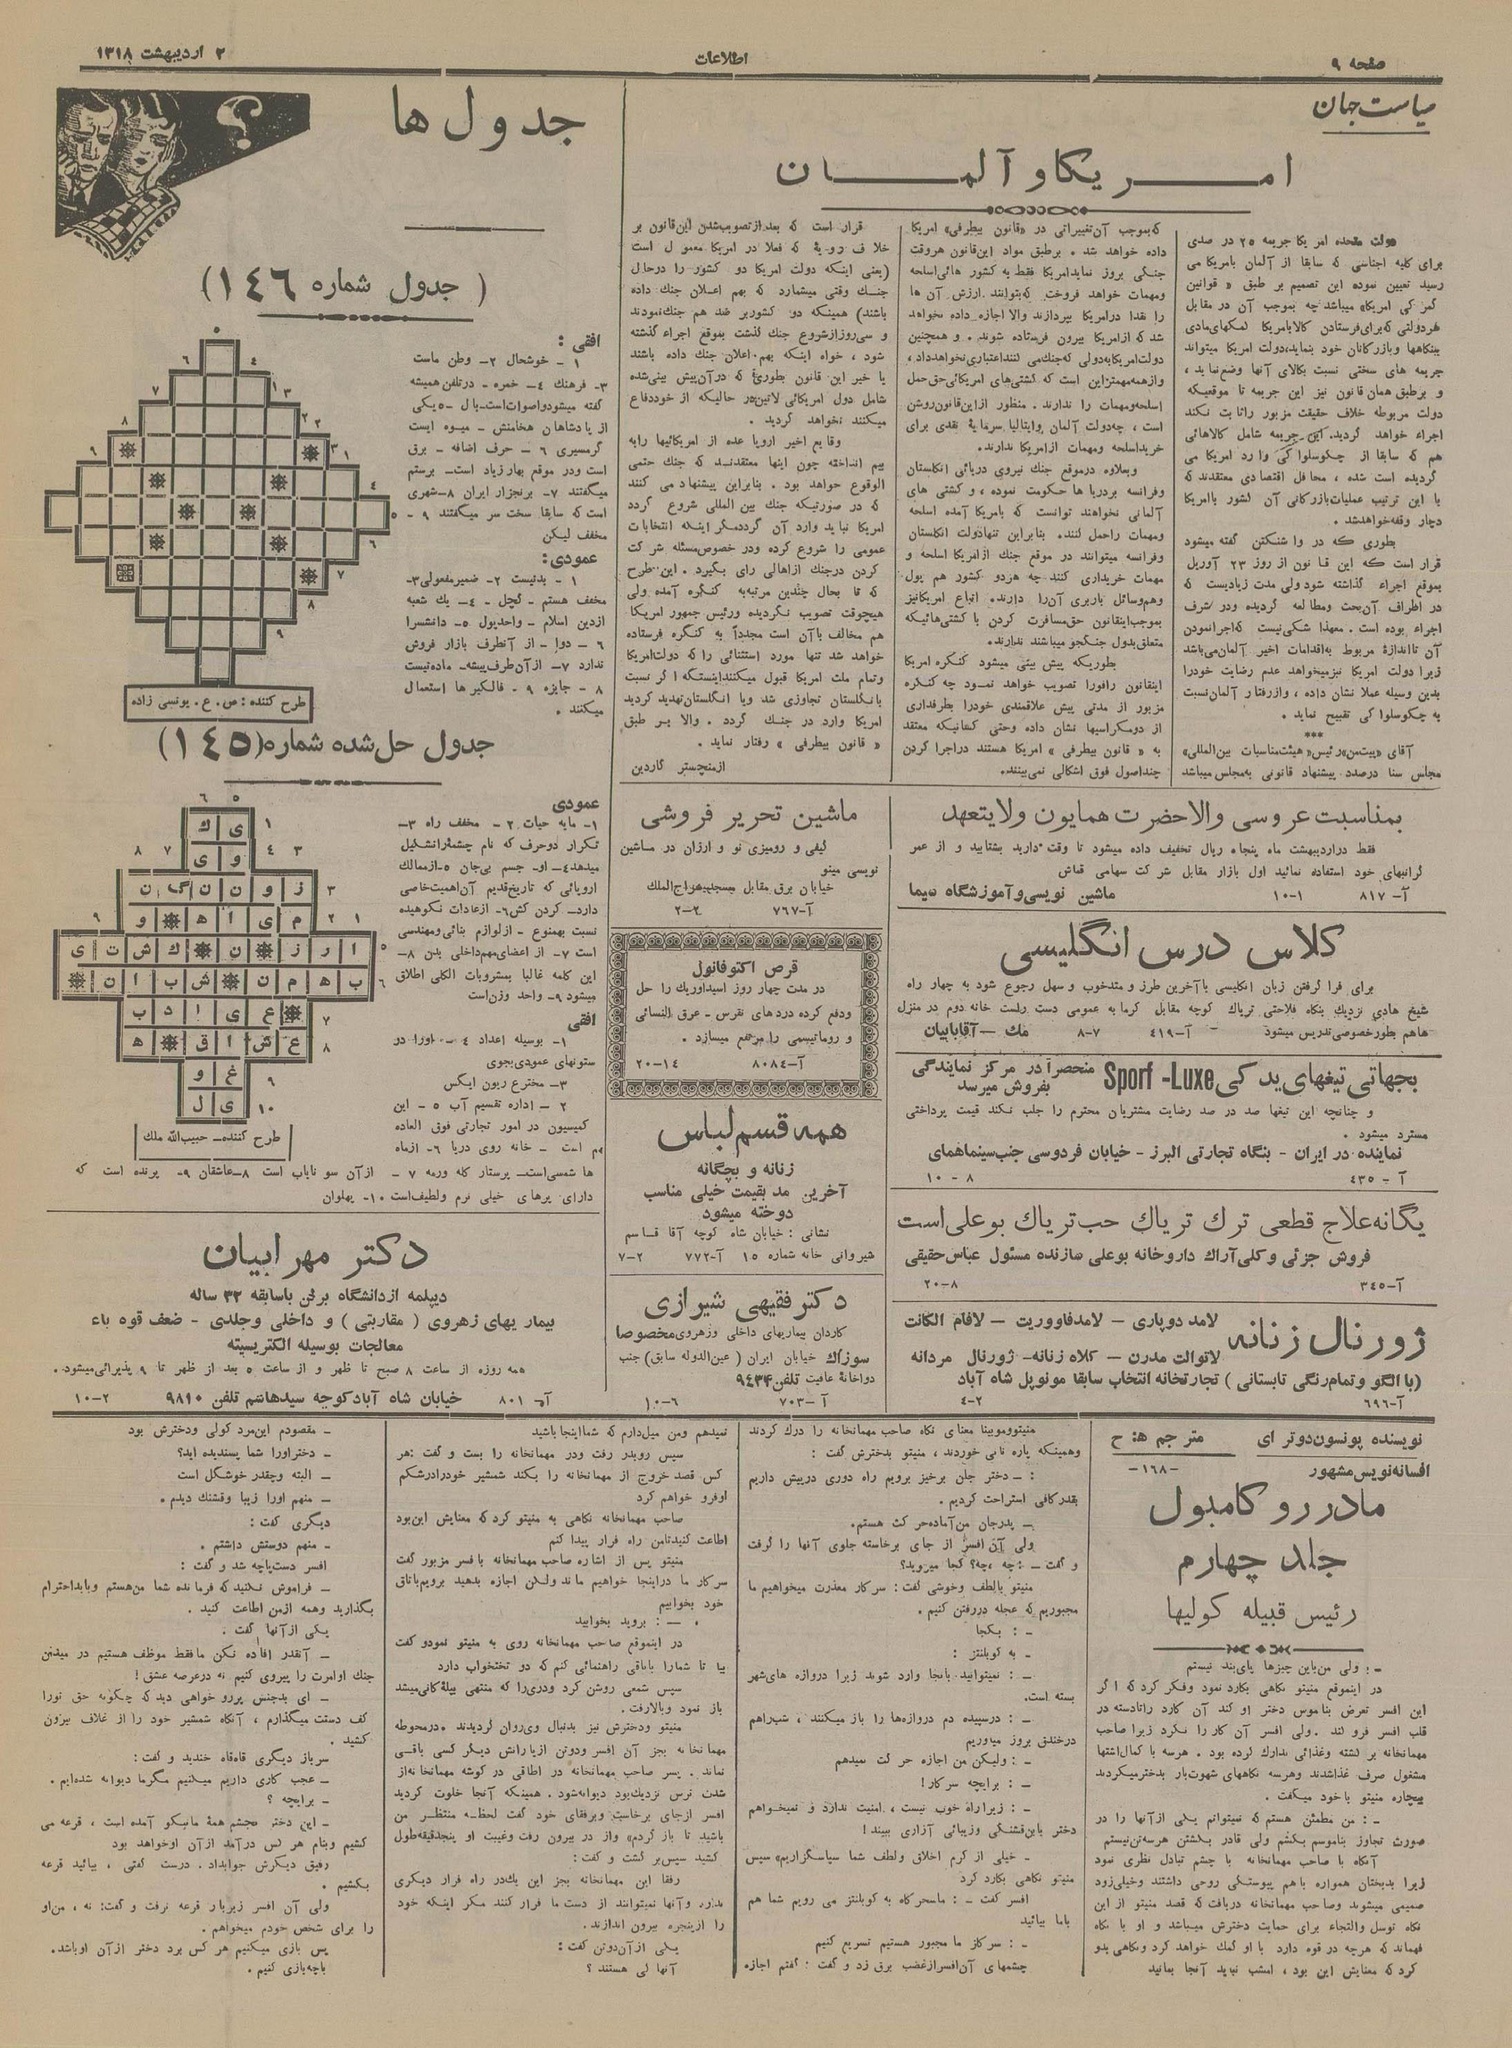 صفحه ۹
اطلاعات
۲ اردیبهشت ۱۳۱۸
سیاست جهان
امریکا و آلمان
دولت متحده امریکا جریمه ۲۵ در صدی
برای کلیه اجناسی که سابقا از آلمان بامریکا می
رسید تعیین نموده این تصمیم بر طبق « قوانین
گمرکی امریکا» میباشد چه بموجب آن در مقابل
هردولتی که برای فرستادن کالا بامریکا کمکهای مادی
ببنگاهها و بازرگانان خود بنماید، دولت امریکا میتواند
جریمه های سختی نسبت بکالای آنها وضع نماید ،
و برطبق همان قانون نیز این جریمه تا موقعیکه
دولت مربوطه خلاف حقیقت مزبور را ثابت نکند
اجراء خواهد گردید. این جریمه شامل کالاهائی
هم که سابقا از چکوسلواکی وارد امریکا می
گردیده است شده ، محافل اقتصادی معتقدند که
با این ترتیب عملیات بازرگانی آن کشور با امریکا
دچار وقفه خواهد شد .
بطوری که در واشنگتن گفته میشود
قرار است که این قانون از روز ۲۳ آوریل
بموقع اجراء گذاشته شود ولی مدت زیادیست که
در اطراف آن بحث و مطالعه گردیده و در شرف
اجراء بوده است . معهذا شکی نیست که اجرا نمودن
آن تا اندازهٔ مربوط به اقدامات اخیر آلمان می باشد
زیرا دولت امریکا نیز میخواهد عدم رضایت خود را
بدین وسیله عملا نشان داده ، و از رفتار آلمان نسبت
به چکوسلواکی تقبیح نماید .
***
آقای «پیت من» رئیس «هیئت مناسبات بین المللی»
مجلس سنا درصدد پیشنهاد قانونی به مجلس میباشد
که بموجب آن تغییراتی در «قانون بیطرفی» امریکا
داده خواهد شد . برطبق مواد این قانون هروقت
جنگی بروز نماید امریکا فقط به کشور هائی اسلحه
ومهمات خواهد فروخت که بتوانند ارزش آن ها
را نقدا در امریکا بپردازند والا اجازه داده نخواهد
شد که از امریکا بیرون فرستاده شوند . و همچنین
دولت امریکا به دولی که جنگ می کنند اعتباری نخواهد داد ،
و از همه مهمتر این است که کشتی های امریکائی حق حمل
اسلحه و مهمات را ندارند . منظور از این قانون روشن
است ، چه دولت آلمان و ایتالیا سرمایهٔ نقدی برای
خرید اسلحه و مهمات از امریکا ندارند.
وبعلاوه در موقع جنگ نیروی دریائی انگلستان
وفرانسه بر دریا ها حکومت نموده ، و کشتی های
آلمانی نخواهند توانست که بامریکا آمده اسلحه
ومهمات را حمل کنند. بنابراین تنها دولت انگلستان
وفرانسه میتوانند در موقع جنگ از امریکا اسلحه و
مهمات خریداری کنند چه هر دو کشور هم پول
وهم وسائل باربری آن را دارند. اتباع امریکا نیز
بموجب این قانون حق مسافرت کردن با کشتی هائیکه
متعلق بدول جنگجو میباشند ندارند.
بطوریکه پیش بینی میشود کنگره امریکا
اینقانون را فورا تصویب خواهد نمود چه کنگره
مزبور از مدتی پیش علاقمندی خود را بطرفداری
از دمکراسیها نشان داده وحتی کسانیکه معتقد
به « قانون بیطرفی » امریکا هستند در اجرا کردن
چند اصول فوق اشکالی نمی بینند.
قرار است که بعد از تصویب شدن این قانون بر
خلاف رویهٔ که فعلا در امریکا معمول است
(یعنی اینکه دولت امریکا دو کشور را در حال
جنگ وقتی میشمارد که بهم اعلان جنگ داده
باشند) همینکه دو کشور بر ضد هم جنگ نمودند
و سی روز از شروع جنگ گذشت بموقع اجراء گذاشته
شود ، خواه اینکه بهم اعلان جنگ داده باشند
یا خیر این قانون بطوری که در آن پیش بینی شده
شامل دول امریکائی لاتین در حالیکه از خود دفاع
میکنند نخواهد گردید .
وقایع اخیر اروپا عده از امریکائیها را به
بیم انداخته چون اینها معتقدند که جنگ حتمی
الوقوع خواهد بود . بنابراین پیشنهاد می کنند
که در صورتیکه جنگ بین المللی شروع گردد
امریکا نباید وارد آن گردد مگر اینکه انتخابات
عمومی را شروع کرده ودر خصوص مسئله شرکت
کردن در جنگ از اهالی رای بگیرد . این طرح
که تا بحال چندین مرتبه به کنگره آمده ولی
هیچوقت تصویب نگردیده و رئیس جمهور امریکا
هم مخالف با آن است مجدداً به کنگره فرستاده
خواهد شد تنها مورد استثنائی را که دولت امریکا
وتمام ملت امریکا قبول میکنند اینستکه اگر نسبت
بانگلستان تجاوزی شد ویا انگلستان تهدید گردید
امریکا وارد در جنگ گردد . والا بر طبق
« قانون بیطرفی » رفتار نماید .
از منچستر گاردین
جدول ها
؟
( جدول شماره ۱۴۶ )
افقی :
۱ - خوشحال ۲- وطن ماست
۳- فرهنگ ۴- خمره - در تلفن همیشه
گفته میشود و اصوات است- بال - ۵ یکی
از پادشاهان هخامنش - میوه ایست
گرمسیری ۶ - حرف اضافه - برق
است ودر موقع بهار زیاد است- برستم
میگفتند ۷- برنجزار ایران ۸- شهری
است که سابقا سخت سر میگفتند ۹ -
مخفف لیکن
عمودی :
۱ - بد نیست ۲- ضمیر مفعولی ۳-
مخفف هستم - کچل - ۴- یک شعبه
از دین اسلام - واحد پول ۵- دانشسرا
۶ - دوا - از آنطرف بازار فروش
ندارد ۷- از آن طرف پیشه- ماده نیست
۸ - جایزه ۹ - فالگیر ها استعمال
میکنند .
طرح کننده : ص . ع . یونسی زاده
جدول حل شده شماره (۱۴۵)
عمودی
۱- مایه حیات ۲ - مخفف راه ۳-
تکرار دو حرف که نام چشمه را تشکیل
میدهد ۴- او- جسم بی جان ۵- از ممالک
اروپائی که تاریخ قدیم آن اهمیت خاصی
دارد- گردن کش ۶- از عادات نکوهیده
نسبت بهمنوع - از لوازم بنائی و مهندسی
است ۷- از اعضای مهم داخلی بدن ۸-
این کلمه غالبا بمشروبات الکلی اطلاق
میشود ۹- واحد وزن است
افقی
۱- بوسیله اعداد ۴ - اورا در
ستونهای عمودی بجوی
۳- مخترع ریون ایکس
۲ - اداره تقسیم آب ۵ - این
کمیسیون در امور تجارتی فوق العاده
مهم است - خانه روی دریا ۶- از ماه
ها شمسی است- پرستار گله و رمه ۷ - از آن سو نایاب است ۸- عاشقان ۹- پرنده است که
دارای پرهای خیلی نرم و لطیف است ۱۰- پهلوان
طرح کننده- حبیب الله ملک
بمناسبت عروسی والاحضرت همایون ولایتعهد
فقط در اردیبهشت ماه پنجاه ریال تخفیف داده میشود تا وقت دارید بشتابید و از عمر
گرانبهای خود استفاده نمائید اول بازار مقابل شرکت سهامی قماش
ماشین نویسی و آموزشگاه سیما
آ- ۸۱۷
۱۰-۱
ماشین تحریر فروشی
کیفی و رومیزی نو و ارزان در ماشین
نویسی مینو
خیابان برق مقابل مسجد سراج الملک
آ- ۷۶۷
۲-۲
کلاس درس انگلیسی
برای فرا گرفتن زبان انگلیسی با آخرین طرز و متد خوب و سهل رجوع شود به چهار راه
شیخ هادی نزدیک بنگاه فلاحتی تریاک کوچه مقابل گرمابه عمومی دست راست خانه دوم در منزل
هاهم بطور خصوصی تدریس میشود
آ- ۴۱۹
۸-۷
مک - آقابابیان
بجهاتی تیغهای یدکی Sporf-Luxe منحصراً در مرکز نمایندگی بفروش میرسد
و چنانچه این تیغها صد در صد رضایت مشتریان محترم را جلب نکند قیمت پرداختی
مسترد میشود .
نماینده در ایران - بنگاه تجارتی البرز - خیابان فردوسی جنب سینما همای
آ - ۴۳۵
۱۰-۸
قرص اکتوفانول
در مدت چهار روز اسید اوریک را حل
ودفع کرده دردهای نقرس - عرق النسائی
و روماتیسمی را مرتفع میسازد .
آ- ۸۰۸۴
۲۰-۱۴
همه قسم لباس
زنانه و بچگانه
آخرین مد بقیمت خیلی مناسب
دوخته میشود
نشانی : خیابان شاه کوچه آقا قاسم
شیروانی خانه شماره ۱۵ آ-۷۷۲ ۷-۲
یگانه علاج قطعی ترک تریاک حب تریاک بوعلی است
فروش جزئی و کلی آراک داروخانه بوعلی سازنده مسئول عباس حقیقی
آ- ۳۴۵
۲۰-۸
دکتر فقیهی شیرازی
کاردان بیماریهای داخلی و زهروی مخصوصا
سوزاک خیابان ایران ( عین الدوله سابق) جنب
دواخانهٔ عافیت تلفن ۹۴۳۴
آ - ۷۰۳
۱۰-۶
ژورنال زنانه
لامد دوپاری - لامد فاووریت - لافام الگانت
لاتوالت مدرن - کلاه زنانه- ژورنال مردانه
(با الگو و تمام رنگی تابستانی ) تجارتخانه انتخاب سابقا مونوپل شاه آباد
آ- ۶۹۶
۴-۲
دکتر مهرابیان
دیپلمه از دانشگاه برلن با سابقه ۳۲ ساله
بیماریهای زهروی ( مقاربتی ) و داخلی و جلدی - ضعف قوه باء
معالجات بوسیله الکتریسیته
همه روزه از ساعت ۸ صبح تا ظهر و از ساعت ۵ بعد از ظهر تا ۹ پذیرائی میشود.
آ- ۸۰۱ خیابان شاه آباد کوچه سید هاشم تلفن ۹۸۱۰ ۱۰-۲
نویسنده پونسون دوترای
مترجم ه: ح
افسانه نویس مشهور
-۱۶۸-
مادر روکامبول
جلد چهارم
رئیس قبیله کولیها
- : ولی من باین چیزها پای بند نیستم
در اینموقع منیتو نگاهی بکارد نمود وفکر کرد که اگر
این افسر تعرض بناموس دختر او کند آن کارد را تا دسته در
قلب افسر فرو کند . ولی افسر آن کار را نکرد زیرا صاحب
مهمانخانه بر گشته وغذائی تدارک کرده بود . هرسه با کمال اشتها
مشغول صرف غذا شدند وهرسه نگاههای شهوت بار بدختر میکردند
بیچاره منیتو با خود میگفت .
- : من مطمئن هستم که نمیتوانم یکی از آنها را در
صورت تجاوز بناموسم بکشم ولی قادر بکشتن هرسه تن نیستم
آنگاه با صاحب مهمانخانه با چشم تبادل نظری نمود
زیرا بدبختان همواره با هم پیوستگی روحی داشتند وخیلی زود
صمیمی میشوند وصاحب مهمانخانه دریافت که قصد منیتو از این
نگاه توسل والتجاء برای حمایت دخترش میباشد و او با نگاه
فهماند که هرچه در قوه دارد با او کمک خواهد کرد ونگاهی بدو
کرد که معنایش این بود ، امشب نباید آنجا بمانید
منیتو ومویینا معنای نگاه صاحب مهمانخانه را درک کردند
وهمینکه پاره نانی خوردند ، منیتو بدخترش گفت :
: - دختر جان برخیز برویم راه دوری در پیش داریم
بقدر کافی استراحت کردیم .
- پدر جان من آماده حرکت هستم.
ولی آن افسر از جای برخاسته جلوی آنها را گرفت
و گفت - : چه ، چه؟ کجا میروید؟
منیتو با لطف وخوشی گفت : سرکار معذرت میخواهیم ما
مجبوریم که عجله در رفتن کنیم .
- : بکجا
- به کوبلنتز :
- : نمیتوانید بانجا وارد شوید زیرا دروازه های شهر
بسته است.
- : در سپیده دم دروازه ها را باز میکنند ، شب را هم
در خندق بروز میاوریم
- : ولیکن من اجازه حرکت نمیدهم
- : برایچه سرکار !
- : زیرا راه خوب نیست ، امنیت ندارد و نمیخواهم
دختر باین قشنگی وزیبائی آزاری ببیند !
- خیلی از کرم اخلاق ولطف شما سپاسگزاریم» سپس
منیتو نگاهی بکارد کرد
افسر گفت - : ما سحرگاه به کوبلنتز می رویم شما هم
با ما بیائید
- : سرکار ما مجبور هستیم تسریع کنیم
چشمهای آن افسر از غضب برق زد و گفت : گفتم اجازه
نمیدهم ومن میل دارم که شما اینجا باشید
سپس رو بدر رفت ودر مهمانخانه را بست و گفت : هر
کس قصد خروج از مهمانخانه را بکند شمشیر خود را در شکم
او فرو خواهم کرد
صاحب مهمانخانه نگاهی به منیتو کرد که معنایش این بود
اطاعت کنید تا من راه فرار پیدا کنم
منیتو پس از اشاره صاحب مهمانخانه با فسر مزبور گفت
سرکار ما در اینجا خواهیم ماند ولیکن اجازه بدهید برویم باتاق
خود بخوابیم
- : بروید بخوابید
در اینموقع صاحب مهمانخانه روی به منیتو نمود و گفت
بیا تا شما را باتاقی راهنمائی کنم که دو تختخواب دارد
سپس شمعی روشن کرد ودری را که منتهی بپلکانی میشد
باز نمود وبالا رفت.
منیتو ودخترش نیز بدنبال وی روان گردیدند . در محوطه
مهمانخانه بجز آن افسر ودوتن از یارانش دیگر کسی باقی
نماند . پسر صاحب مهمانخانه در اطاقی در گوشه مهمانخانه از
شدت ترس نزدیک بود دیوانه شود . همینکه آنجا خلوت گردید
افسر از جای برخاست وبرفقای خود گفت لحظه منتظر من
باشید تا باز گردم» واز در بیرون رفت وغیبت او پنجدقیقه طول
کشید سپس بر گشت و گفت :
رفقا این مهمانخانه بجز این یک در راه فرار دیگری
ندارد وآنها نمیتوانند از دست ما فرار کنند مگر اینکه خود
را از پنجره بیرون اندازند .
یکی از آن دو تن گفت :
آنها کی هستند ؟
- مقصودم این مرد کولی ودخترش بود
- دختر او را شما پسندیده اید؟
- البته وچقدر خوشگل است
- منهم او را زیبا و قشنگ دیدم .
دیگری گفت :
- منهم دوستش داشتم .
افسر دست پاچه شد و گفت :
- فراموش نکنید که فرمانده شما من هستم وباید احترام
بگذارید وهمه از من اطاعت کنید .
یکی از آنها گفت :
- آنقدر افاده نکن ما فقط موظف هستیم در میدان
جنگ اوامرت را پیروی کنیم نه در عرصه عشق !
- ای بدجنس پررو خواهی دید که چگونه حق تو را
کف دستت میگذارم ، آنگاه شمشیر خود را از غلاف بیرون
کشید .
سرباز دیگری قاه قاه خندید و گفت:
- عجب کاری داریم میکنیم مگر ما دیوانه شده ایم .
- برایچه ؟
- این دختر بچشم همهٔ ما نیکو آمده است ، قرعه می
کشیم وبنام هر کس درآمد از آن او خواهد بود
رفیق دیگرش جوابداد . درست گفتی ، بیائید قرعه
بکشیم .
ولی آن افسر زیر بار قرعه نرفت و گفت: نه ، من او
را برای شخص خودم میخواهم .
پس بازی میکنیم هر کس برد دختر از آن او باشد.
باچه بازی کنیم .